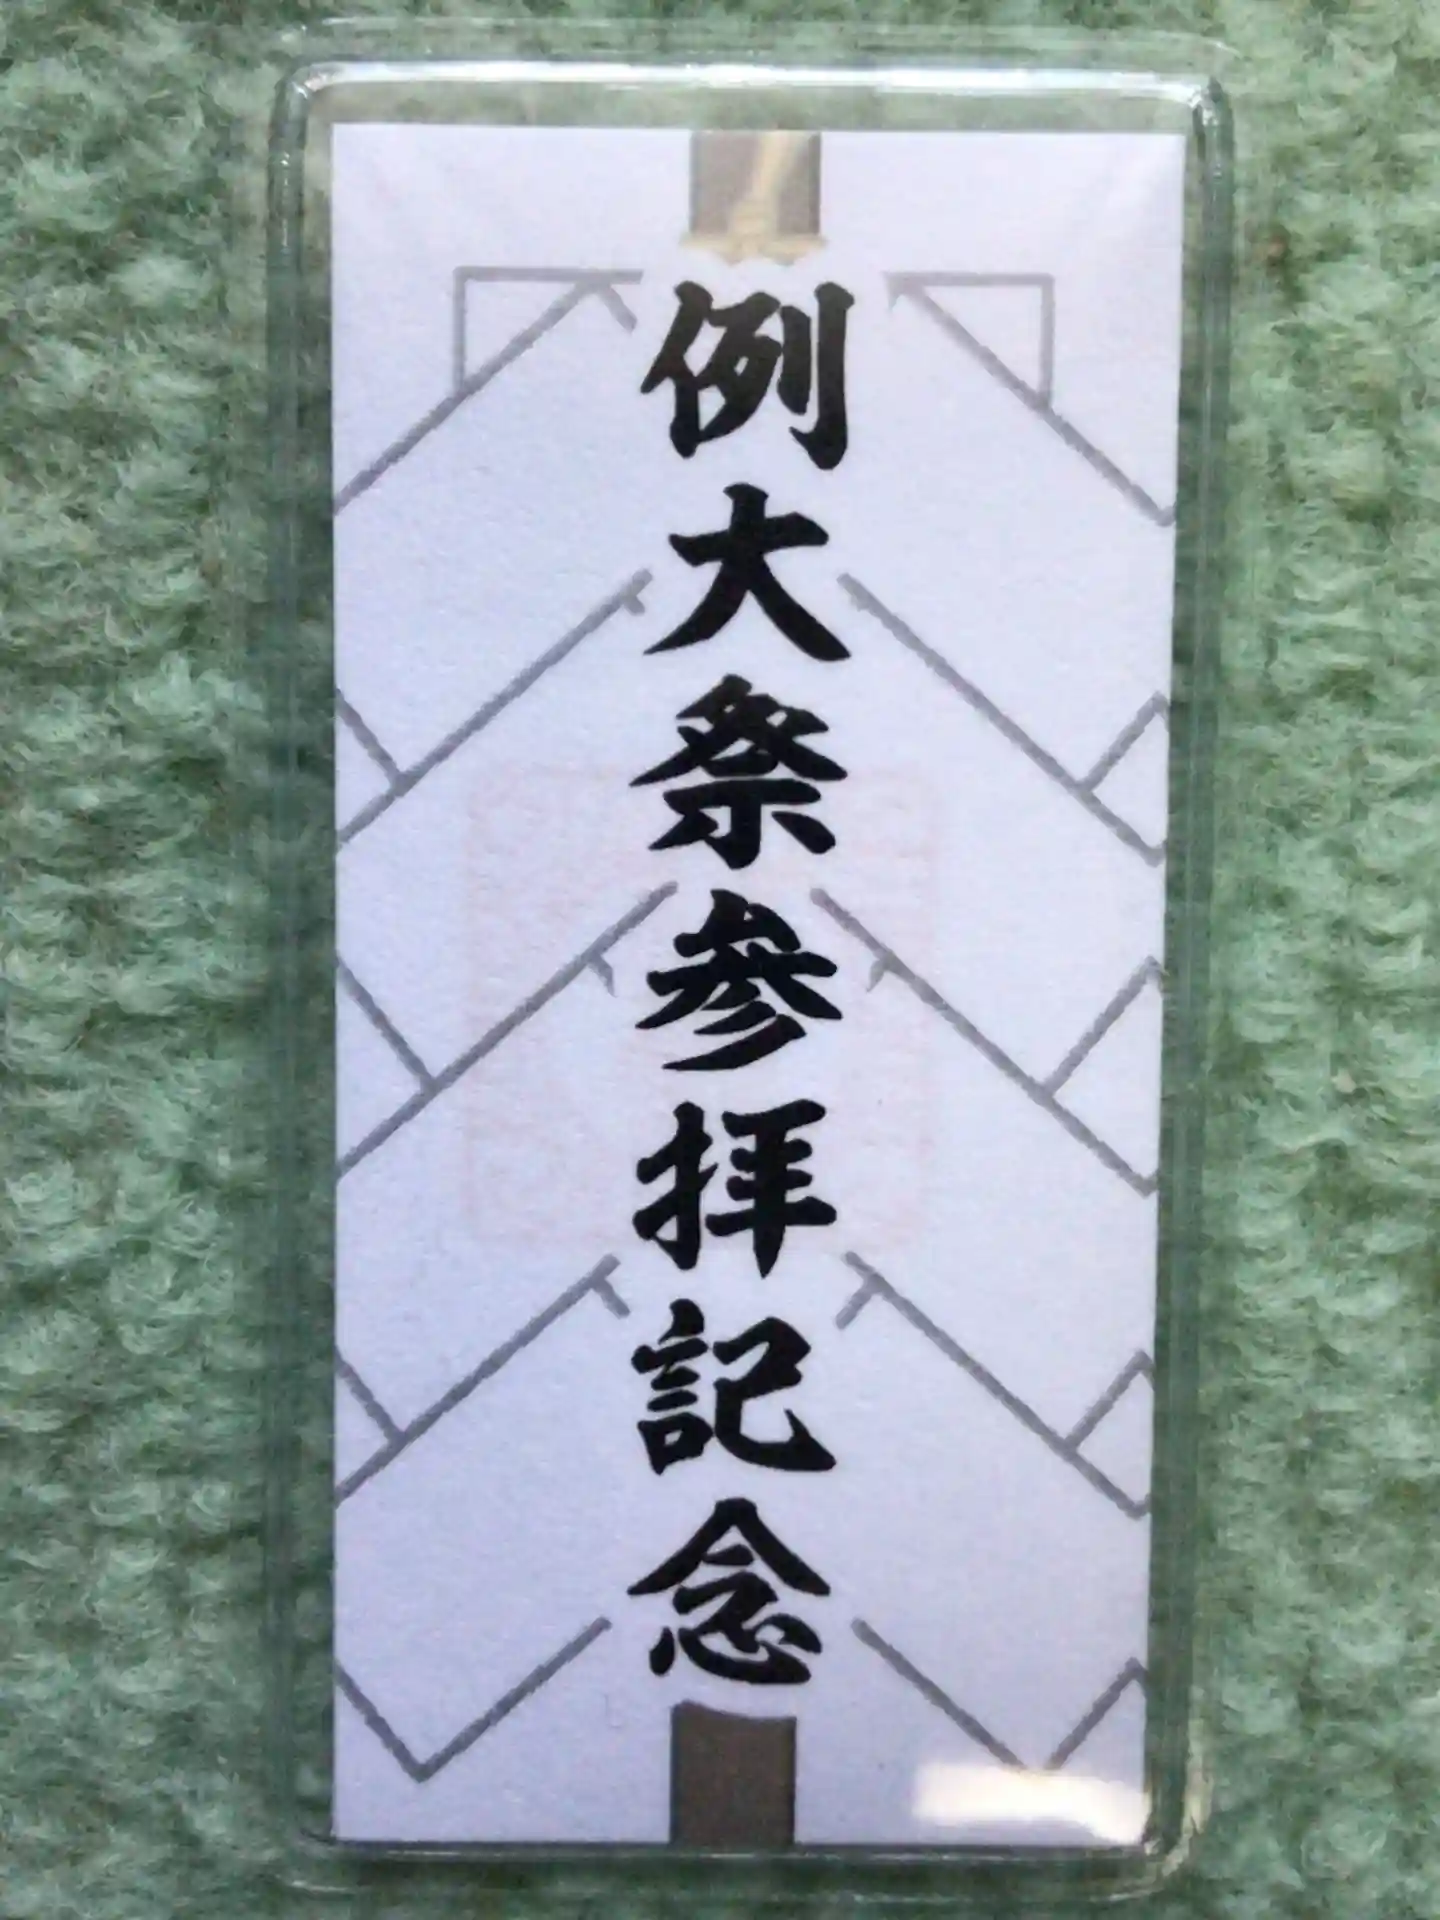 例大祭参拝記念